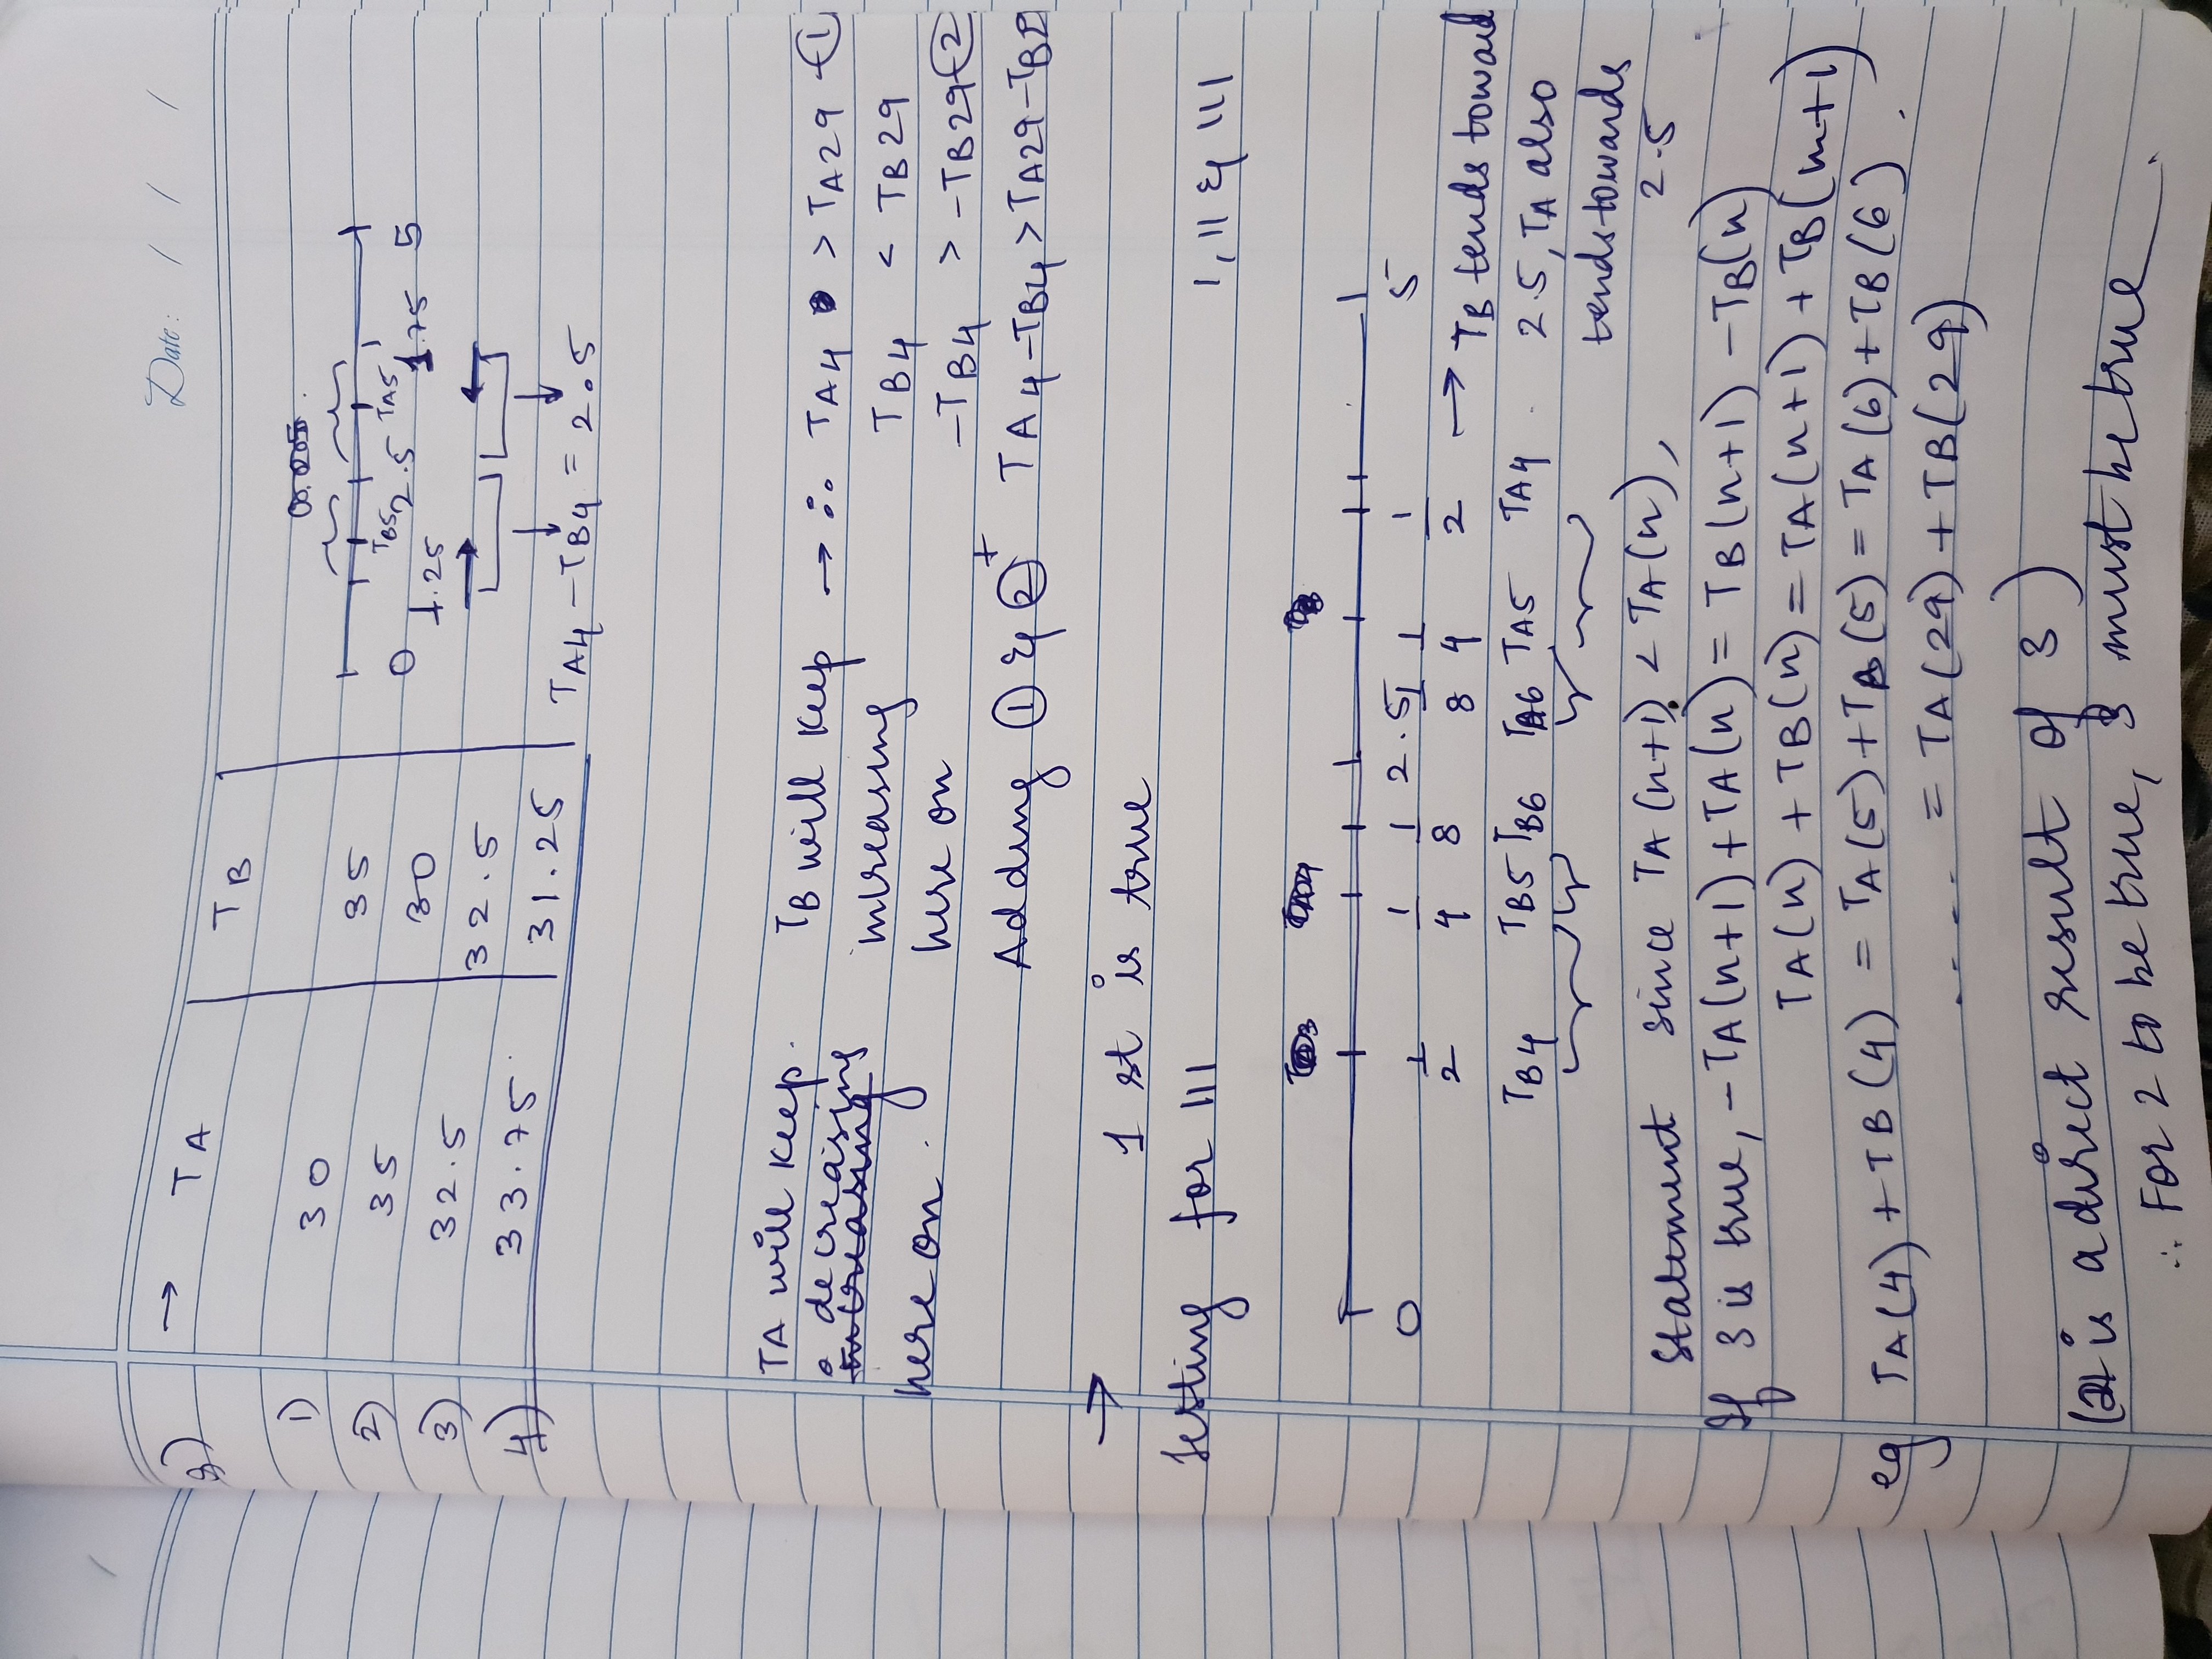 Date: / / /
→ TA TB
1) 30 35
2) 35 30
3) 32.5 32.5
4) 33.75 31.25
TB5 2.5 TA5
0 1.25 3.75 5
TA4 - TB4 = 2.5
TA will keep decreasing here on.
TB will keep increasing here on
→ ∴ TA4 > TA29 - ①
TB4 < TB29
-TB4 > -TB29 - ②
Adding ① & ② + TA4 - TB4 > TA29 - TB29
→ 1 st is true
Testing for III 1, 11 & 111
0 1/2 1/4 1/8 2.5 1/8 1/4 1/2 5
TB4 TB5 TB6 TA6 TA5 TA4
→ TB tends toward
2.5, TA also
tends towards
2.5
Statement since TA(n+1) < TA(n),
If 3 is true, -TA(n+1) + TA(n) = TB(n+1) - TB(n)
TA(n) + TB(n) = TA(n+1) + TB(n+1)
eg TA(4) + TB(4) = TA(5) + TB(5) = TA(6) + TB(6).
.... = TA(29) + TB(29)
(2 is a direct result of 3)
∴ For 2 to be true, 3 must be true